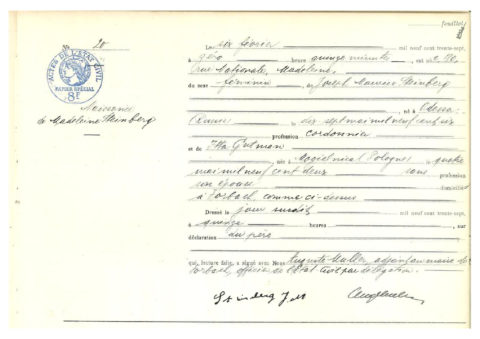 feuillet
20
ACTES DE L'ÉTAT CIVIL
PAPIER SPÉCIAL
8F
Naissance
de Madeleine Steinberg
Le six février mil neuf cent trente-sept,
à zéro heure quinze minutes, est né
rue Nationale, Madeleine,
du sexe féminin de Joseph Maurice Steinberg
né à
le sept mai mil neuf cent
profession cordonnier
et de Itta Gutman
née à Pologne le quatre
mai mil neuf cent deux sans profession
son épouse domiciliés
à Forbach, comme ci-dessus
Dressé le jour susdit mil neuf cent trente-sept,
à quinze heures, sur
déclaration du père
qui, lecture faite, a signé avec Nous Auguste Muller, adjoint au maire de
Forbach, officier de l'État Civil par délégation.